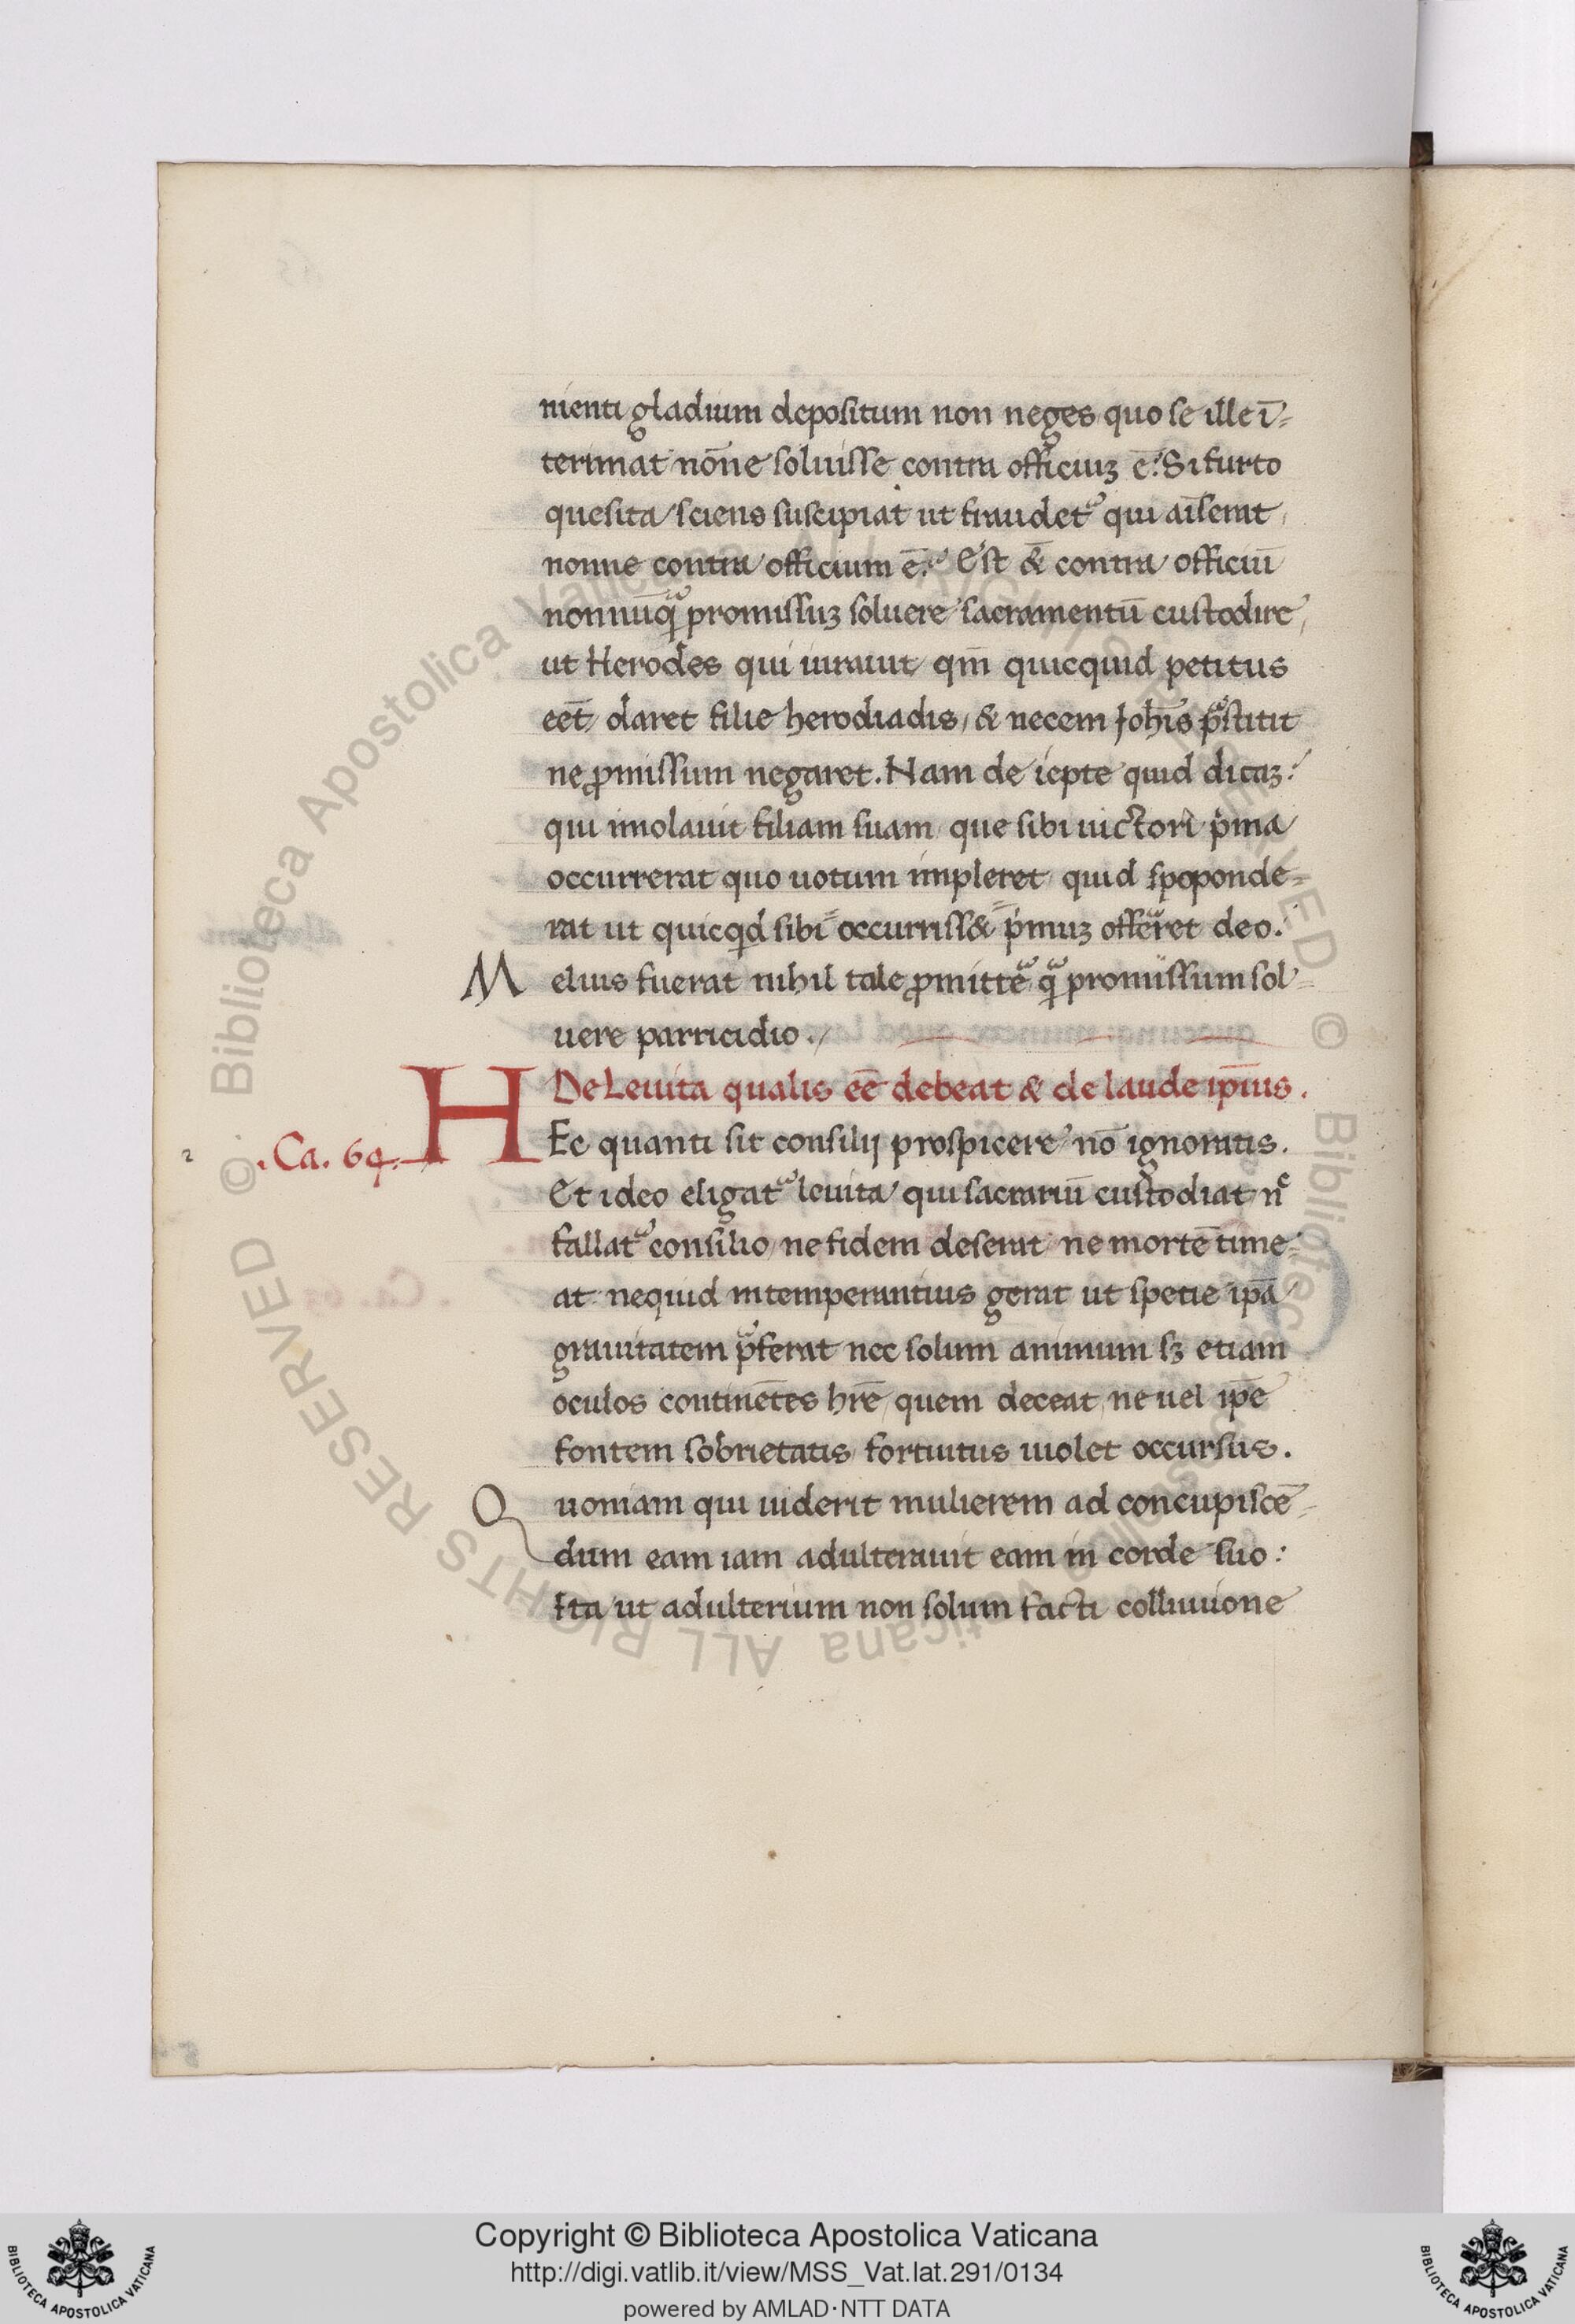 nienti gladium depositum non neges quo se ille ī-
terimat nōne soluisse contra officiuꝫ ē? Si furto
quesita sciens suscipiat ut fraudetᷣ qui aīserat,
nonne contra officium ē? Est & contra officiū
nonnūqᷓ promissuꝫ soluere sacramentū custodire,
ut Herodes qui iurauit qm̄ quicquid petitus
eēt daret filie herodiadis, & necem Joħis p̄stitit
ne ꝓmissum negaret. Nam de iepte quid dicaꝫ?
qui imolauit filiam suam que sibi uictori pͥma
occurrerat quo uotum impleret quid spoponde-
rat ut quicqͥd sibi occurriss& pͥmuꝫ offerret deo.
Melius fuerat nihil tale ꝓmitte᷑ qᷓ promissum sol-
uere parricidio.
De Leuita qualis eē debeat & de laude ip̄ius.
.Ca. 64.
HEc quanti sit consilij prospicere nō ignoratis.
Et ideo eligatᷣ leuita qui sacrariū custodiat nͨ
fallatᷣ consilio, ne fidem deserat ne mortē time-
at nequid intemperantius gerat ut spetie ip̄a
grauitatem p̄ferat nec solum animum sꝫ etiam
oculos continētes hr̄e quem deceat, ne uel ip̄e
fontem sobrietatis fortuitus uiolet occursus.
Quoniam qui uiderit mulierem ad concupiscē-
dum eam iam adulterauit eam in corde suo:
Ita ut adulterium non solum facti colluuione
© Biblioteca Apostolica Vaticana ALL RIGHTS RESERVED
© Biblioteca Apostolica Vaticana ALL RIGHTS RESERVED
Copyright © Biblioteca Apostolica Vaticana
http://digi.vatlib.it/view/MSS_Vat.lat.291/0134
powered by AMLAD·NTT DATA
BIBLIOTECA APOSTOLICA VATICANA
BIBLIOTECA APOSTOLICA VATICANA